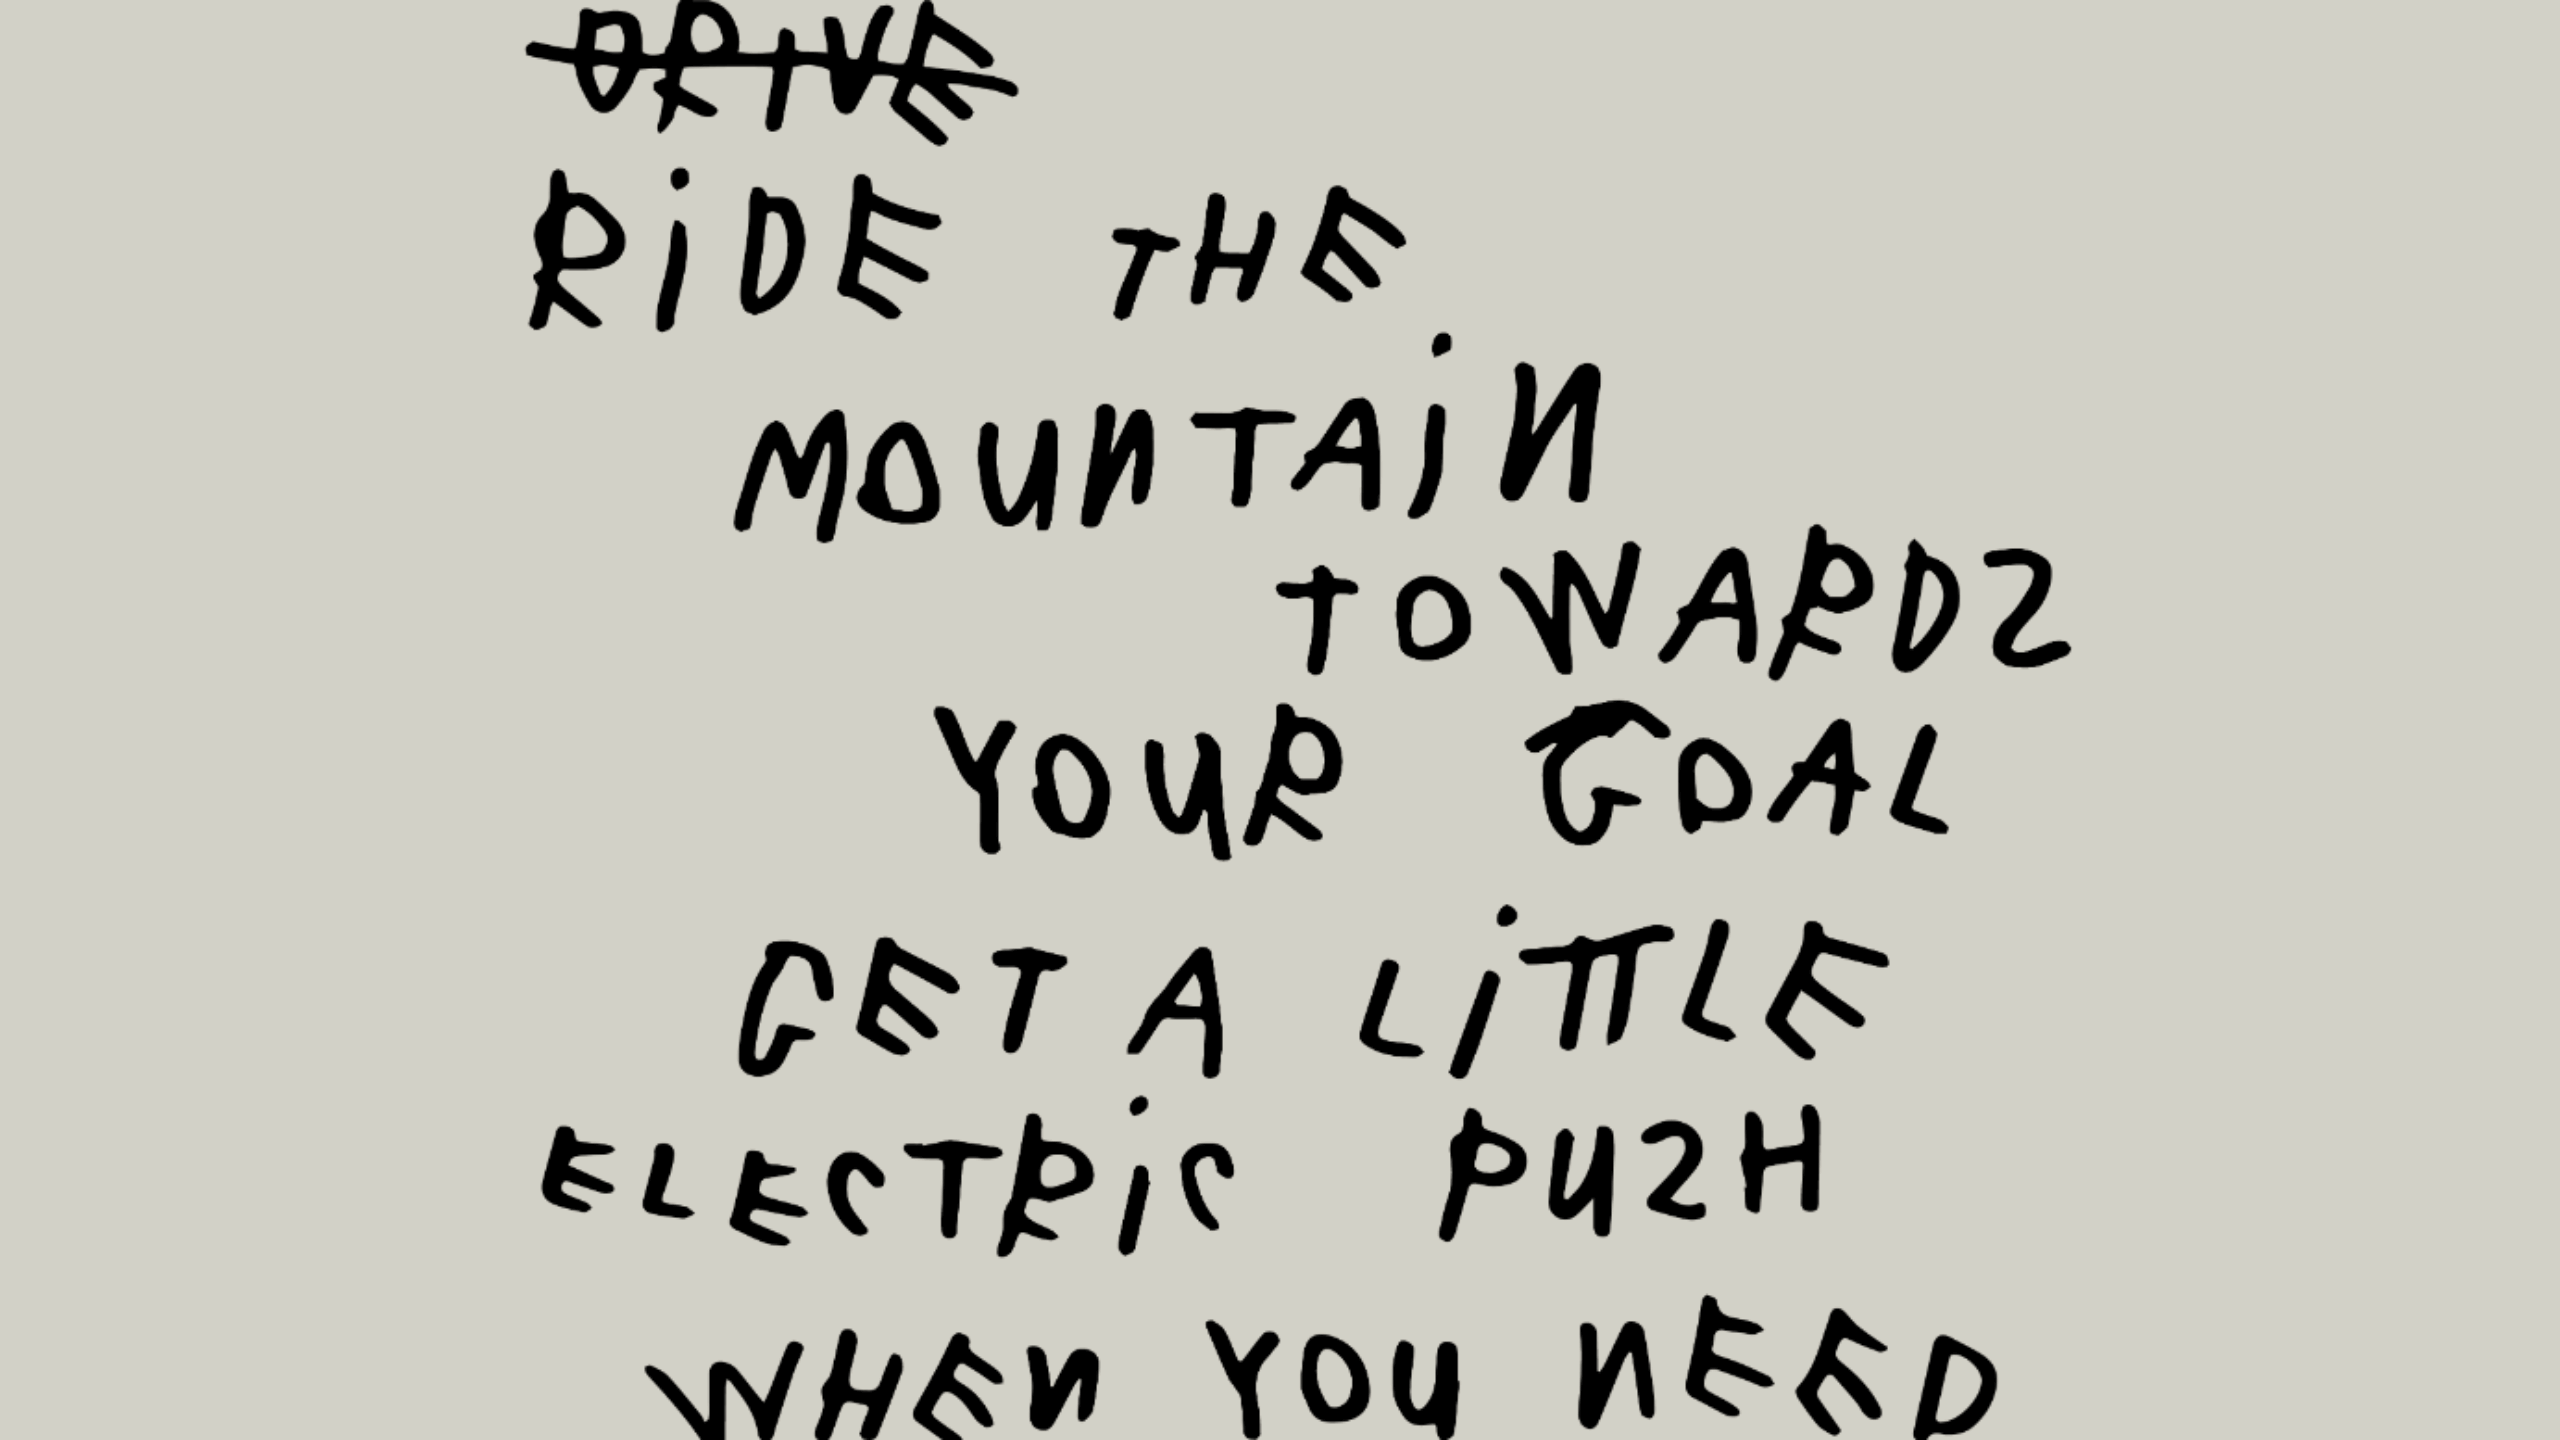 DRIVE
RiDE THE
MOUNTAiN
TOWARDS
YOUR GOAL
GET A LiTTLE
ELECTRiC PUSH
WHEN YOU NEED